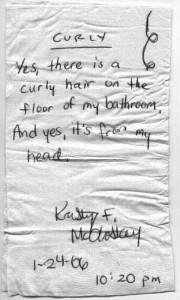 CURLY
Yes, there is a
curly hair on the
floor of my bathroom.
And yes, it's from my
head.
Kristy F.
McCloskey
1-24-06
10:20 pm